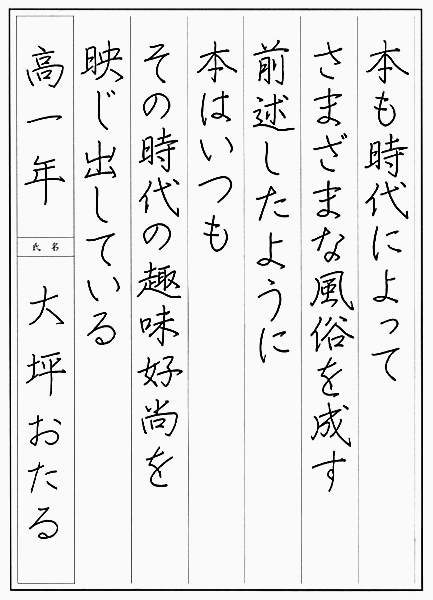 本も時代によって
さまざまな風俗を成す
前述したように
本はいつも
その時代の趣味好尚を
映じ出している
高一年
氏名
大坪おたる